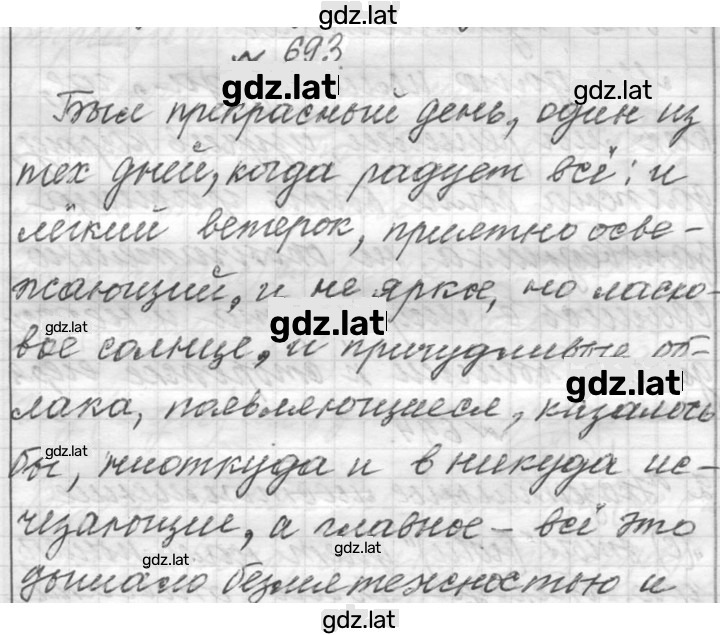 gdz.lat
№ 693
gdz.lat
gdz.lat
Был прекрасный день, один из
тех дней, когда радует всё: и
лёгкий ветерок, приятно осве-
жающий, и не яркое, но ласко-
gdz.lat
gdz.lat
вое солнце, и причудливые об-
gdz.lat
лака, появляющиеся, казалось
gdz.lat
бы, ниоткуда и в никуда ис-
чезающие, а главное – всё это
gdz.lat
gdz.lat
дышало безмятежностью и
gdz.lat